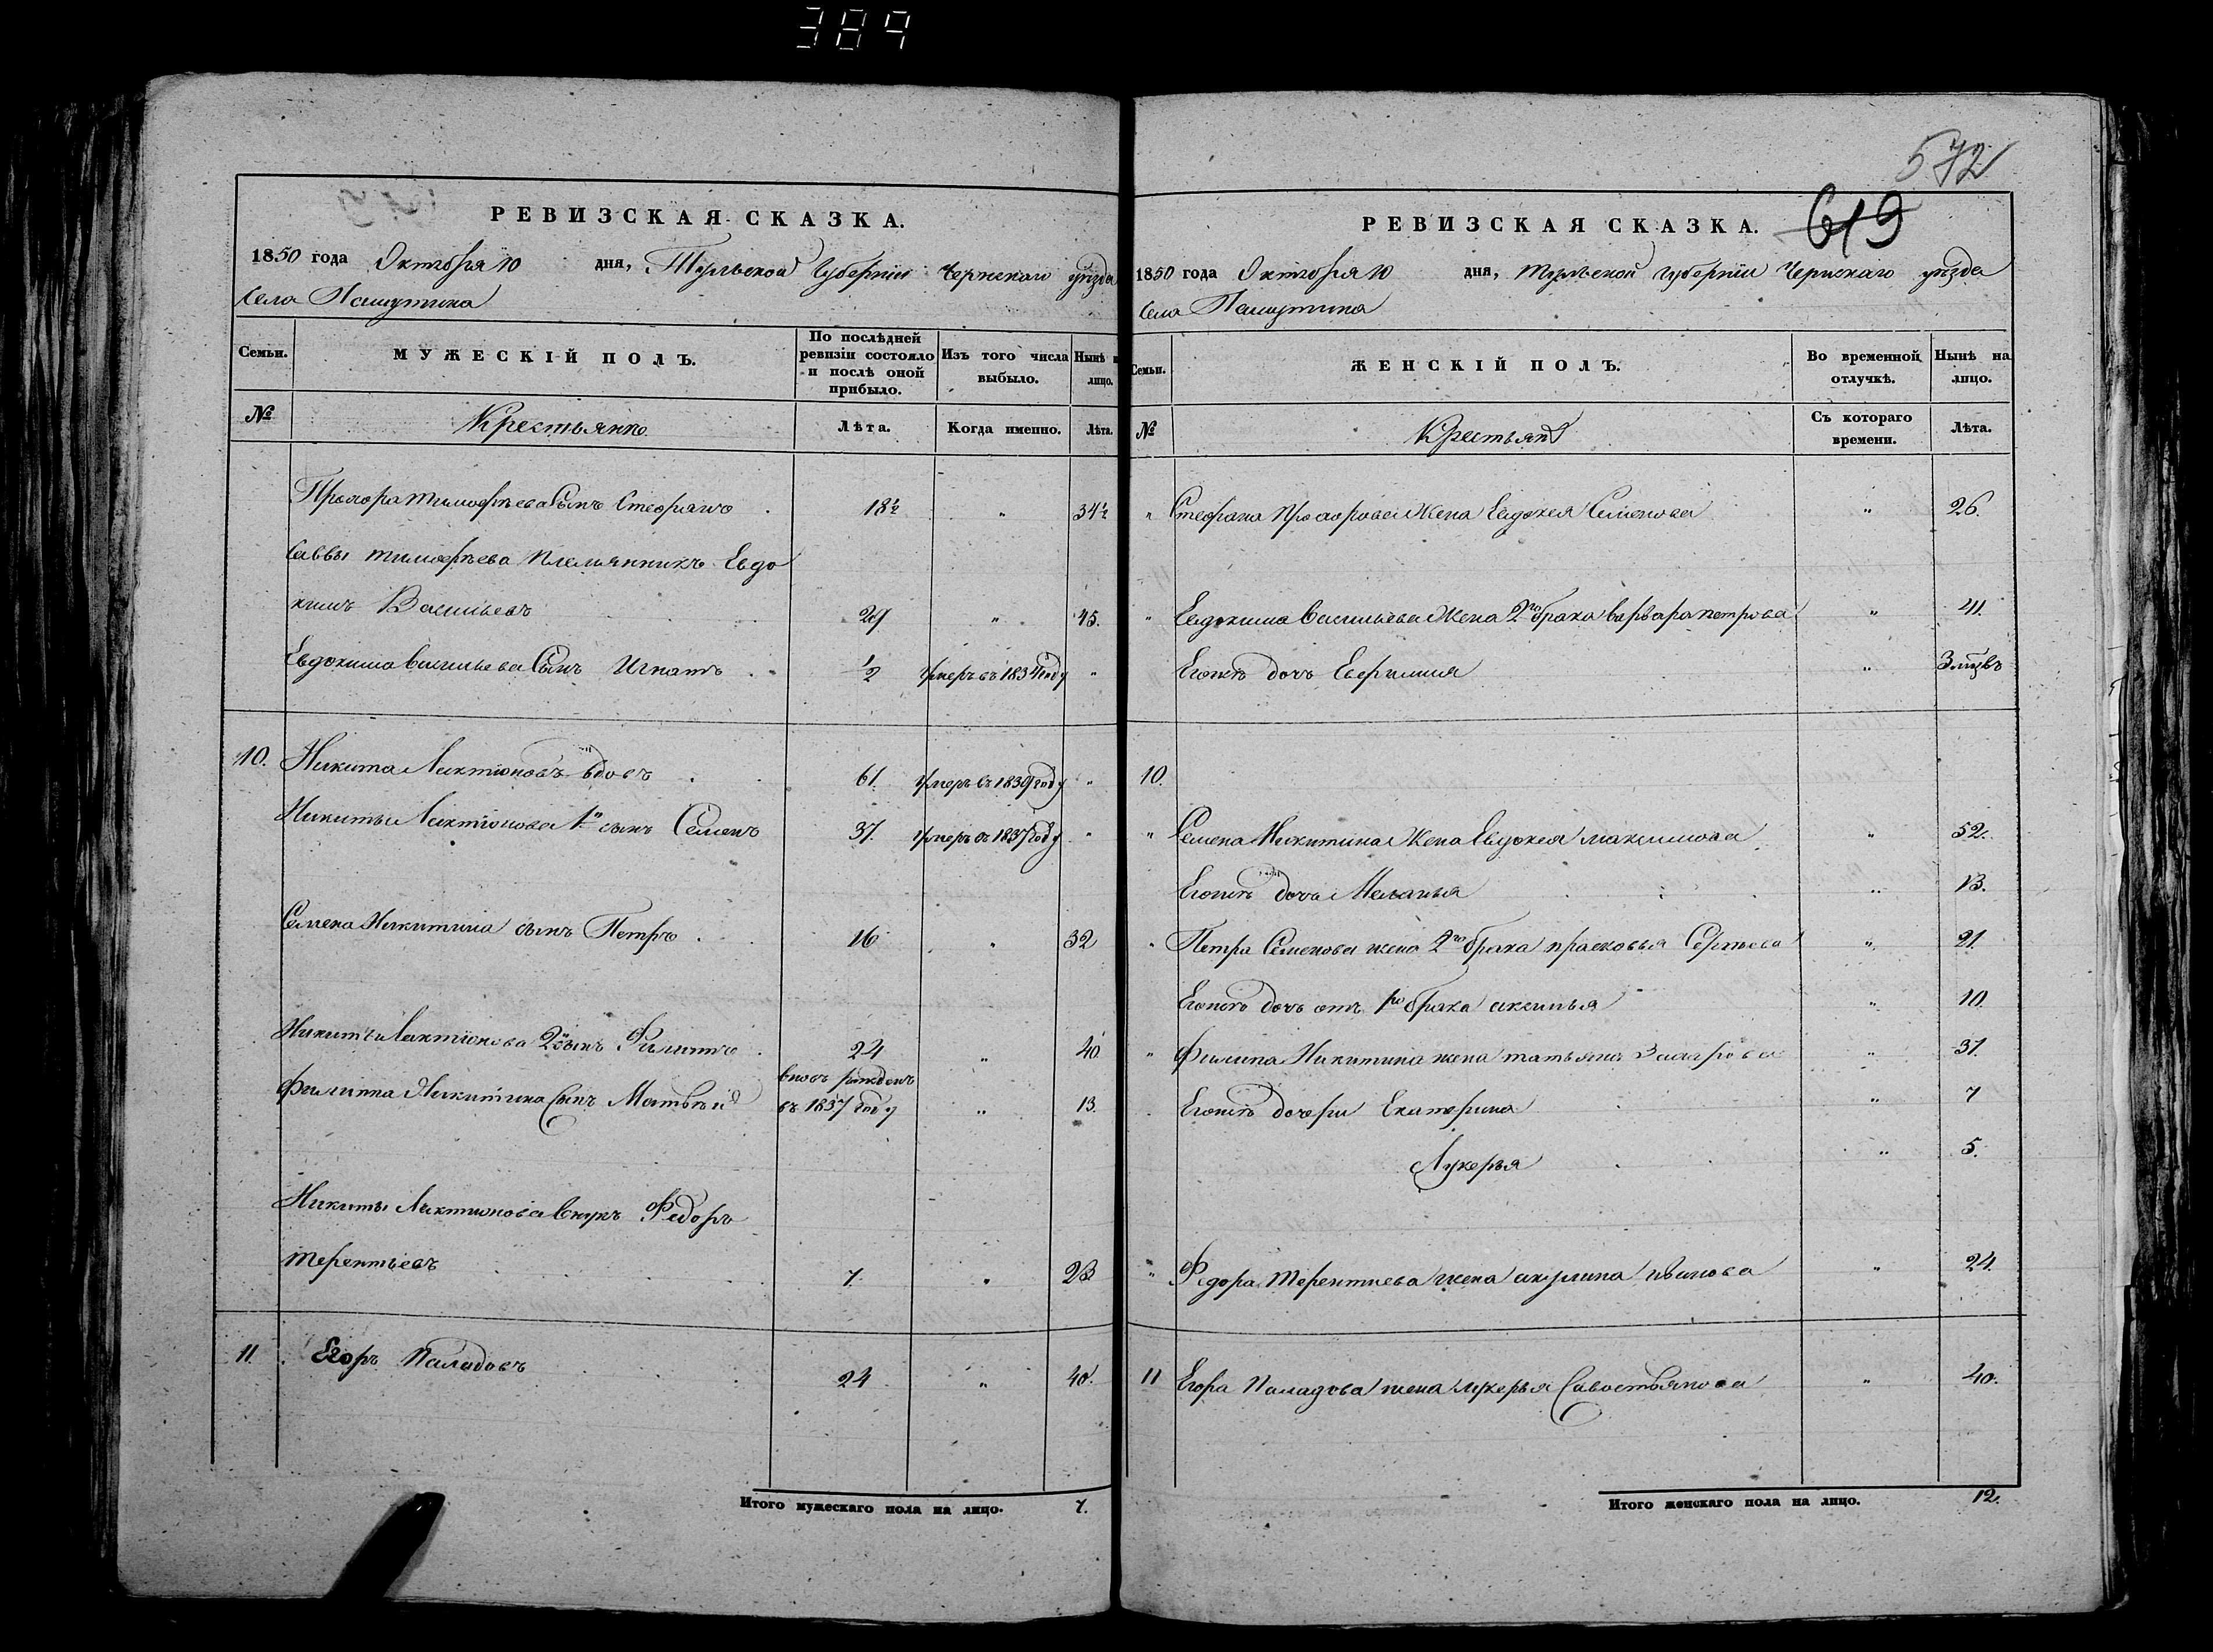 384
РЕВИЗСКАЯ СКАЗКА.
1850 года Октября 10 дня, Тульской Губернiи Чернскаго уѣзда
села Пашутина
Семьи. МУЖЕСКIЙ ПОЛЪ. По послѣдней ревизiи состояло и послѣ оной прибыло. Изъ того числа выбыло. Нынѣ н лицо.
№ Крестьянъ Лѣта. Когда именно. Лѣта.
Прохора тимофѣева Сынъ Стефанъ 18½ " 34½
Саввы тимофѣева племянникъ Евдо
кимъ Васильевъ 29 " 45.
Евдокима васильева Сынъ Игнатъ ½ умеръ въ 1834 году "
10. Никита Лактiоновъ вдовъ 61. умеръ въ 1839 году "
Никиты Лактiонова 1й сынъ Семенъ 37. умеръ въ 1837 году "
Семена Никитина сынъ Петръ 16 " 32
Никиты Лактiонова 2й сынъ Филиппъ 24 " 40
Филиппа Никитина Сынъ Матвѣй вновь рожденъ
въ 1837 году " 13.
Никиты Лактионова внукъ Федоръ
терентьевъ 7. " 23
11. Егоръ Паладовъ 24 " 40.
Итого мужескаго пола на лицо. 7.
572
619
РЕВИЗСКАЯ СКАЗКА.
1850 года Октября 10 дня, тульской губернiи Чернскаго уѣзда
села Пашутина
Семьи. ЖЕНСКIЙ ПОЛЪ. Во временной отлучкѣ. Нынѣ на лицо.
№ Крестьянъ Съ котораго времени. Лѣта.
" Стефана прохорова Жена Евдокея Семенова " 26.
" Евдокима васильева Жена 2го брака варвара петрова " 41.
Егожъ дочь Ефимия " 3 мцвъ
10.
" Семена Никитина Жена Евдокея максимова " 52.
Егожъ дочь Меланья " 13.
" Петра Семенова жена 2го брака прасковья Сергѣева " 21.
Егожъ дочь отъ 1го брака аксинья " 10.
" Филипа Никитина жена татьяна Захарова " 37.
Егожъ дочери Екатерина " 7
Лукерья " 5.
" Федора Терентиева жена акулина иванова " 24.
11 Егора Паладова жена лукерья Савостьянова " 40.
Итого женскаго пола на лицо. 12.